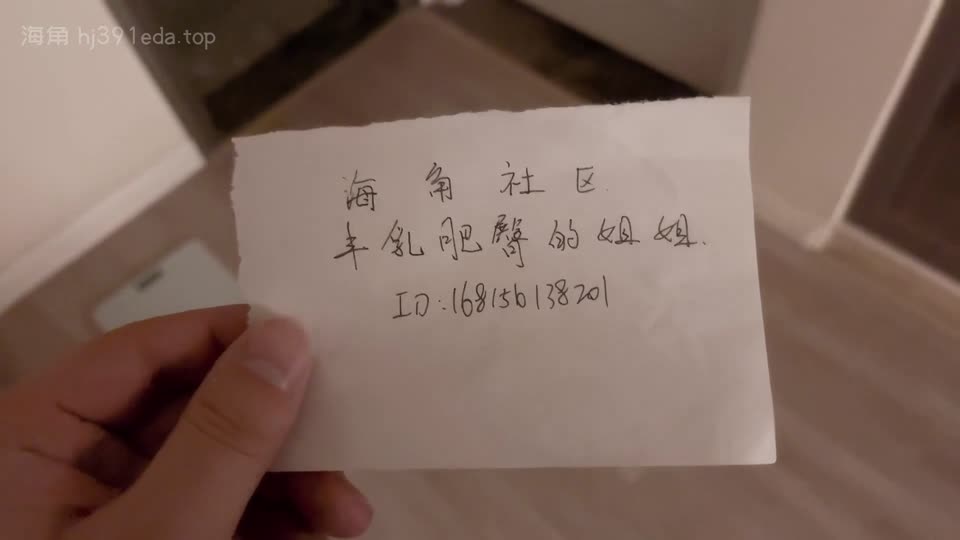 海角 hj391eda.top
海角社区
丰乳肥臀的姐姐.
ID:168156138201